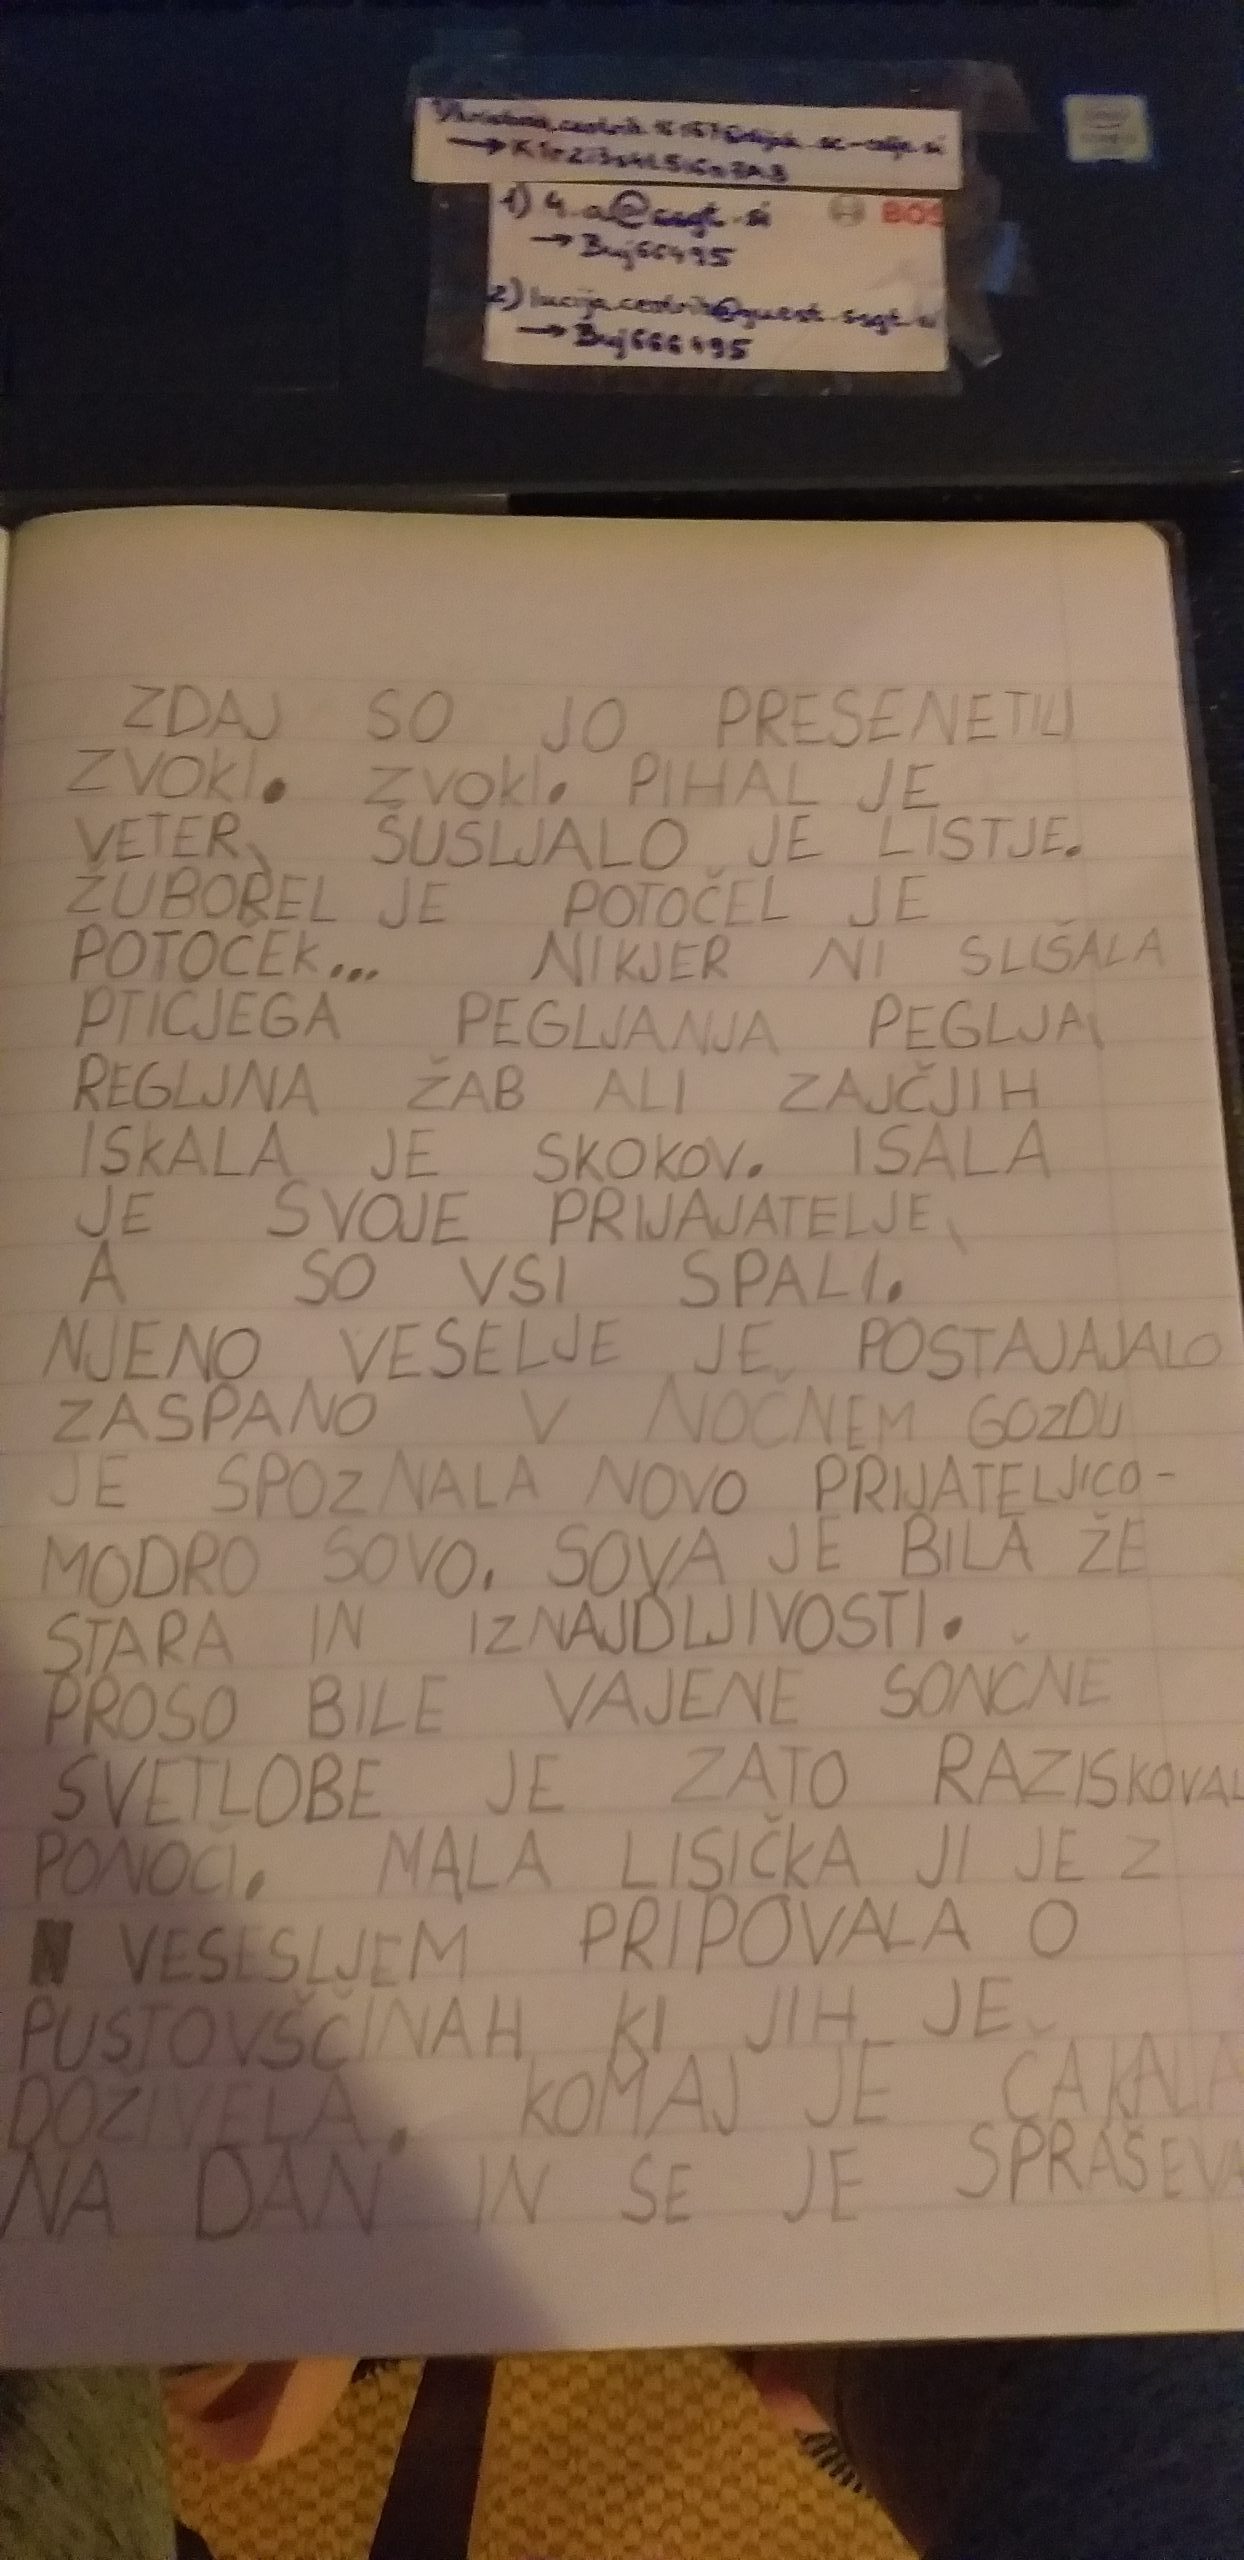 BOS
ZDAJ SO JO PRESENETILI
ZVOKI. ZVOKI. PIHAL JE
VETER, ŠUŠLJALO JE LISTJE.
ŽUBOREL JE POTOČEL JE
POTOČEK... NIKJER NI SLIŠALA
PTICJEGA PEGLJANJA PEGLJA
REGLJNA ŽAB ALI ZAJČJIH
ISKALA JE SKOKOV. ISALA
JE SVOJE PRIJAJATELJE,
A SO VSI SPALI.
NJENO VESELJE JE POSTAJAJALO
ZASPANO V NOČNEM GOZDU
JE SPOZNALA NOVO PRIJATELJICO-
MODRO SOVO. SOVA JE BILA ŽE
STARA IN IZNAJDLJIVOSTI.
PROSO BILE VAJENE SONČNE
SVETLOBE JE ZATO RAZISKOVAL
PONOČI. MALA LISIČKA JI JE Z
VESESLJEM PRIPOVALA O
PUSTOVŠČINAH KI JIH JE
DOŽIVELA. KOMAJ JE ČAKALA
NA DAN IN SE JE SPRAŠEVA